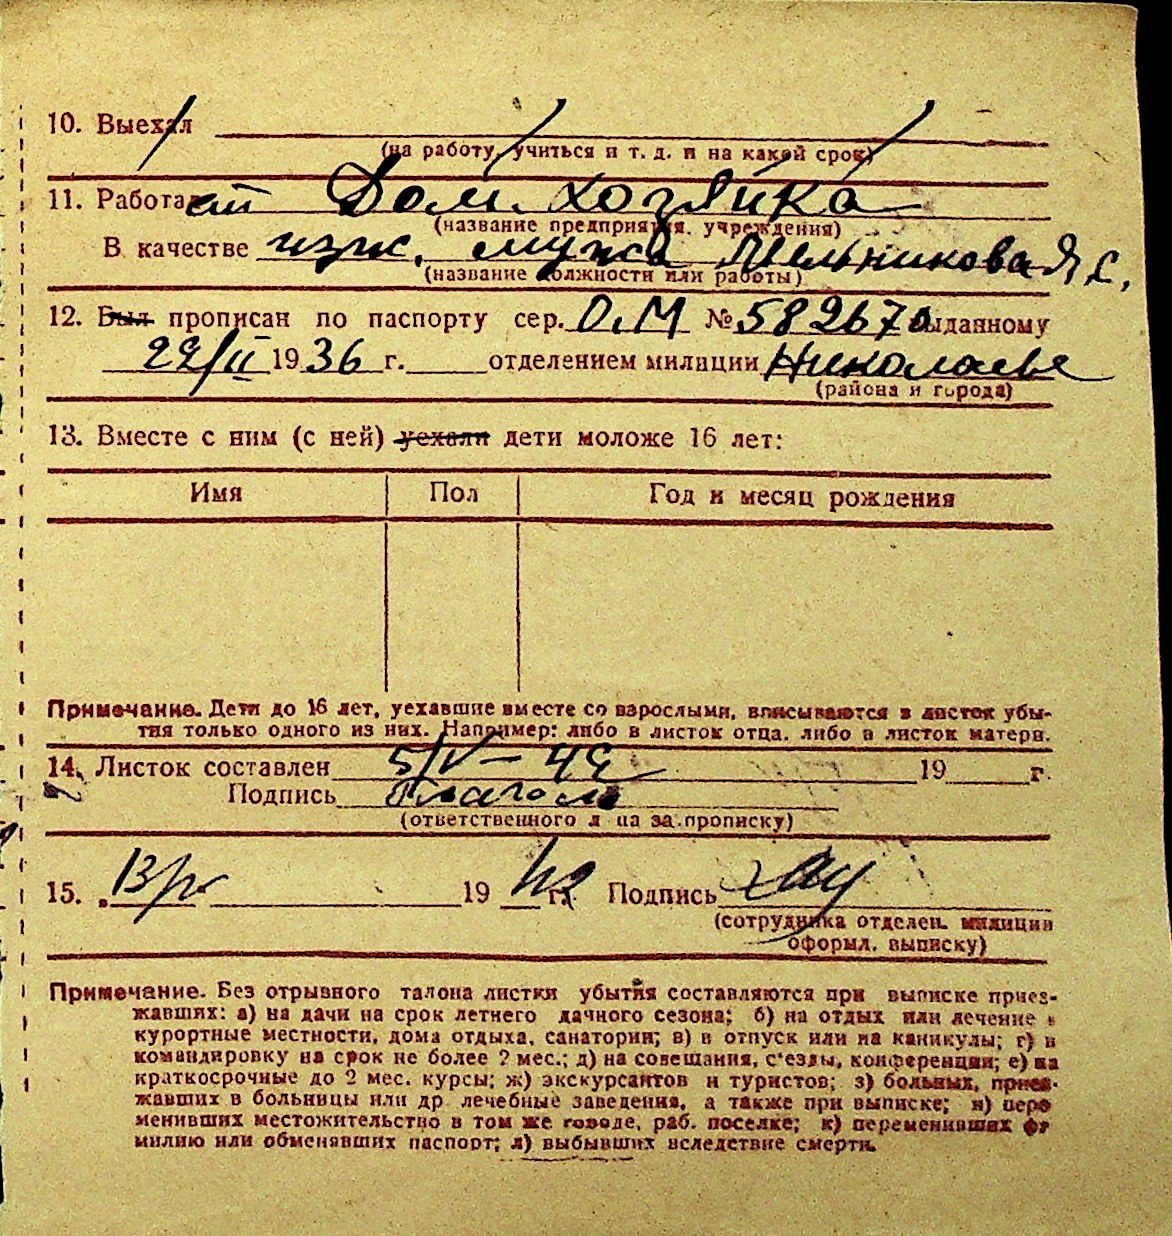 10. Выехал
(на работу, учиться и т. д. и на какой срок)
11. Работает Дом. хозяйка
(название предприятия, учреждения)
В качестве ижж. мужа Мельникова Я С.
(название должности или работы)
12. Был прописан по паспорту сер. О.М № 582670 выданному
22/II 1936 г. отделением милиции Николаеве
(района и города)
13. Вместе с ним (с ней) уехали дети моложе 16 лет:
Имя Пол Год и месяц рождения
Примечание. Дети до 16 лет, уехавшие вместе со взрослыми, вписываются в листок убы-
тия только одного из них. Например: либо в листок отца, либо в листок матери.
14. Листок составлен 5/V - 49 19 г.
Подпись
(ответственного лица за прописку)
15. 19 г. Подпись
(сотрудника отделен. милиции
оформл. выписку)
Примечание. Без отрывного талона листки убытия составляются при выписке приез-
жавших: а) на дачи на срок летнего дачного сезона; б) на отдых или лечение в
курортные местности, дома отдыха, санатории; в) в отпуск или на каникулы; г) в
командировку на срок не более 2 мес.; д) на совещания, с'езды, конференции; е) на
краткосрочные до 2 мес. курсы; ж) экскурсантов и туристов; з) больных, приез-
жавших в больницы или др лечебные заведения, а также при выписке; и) пере
менивших местожительство в том же городе, раб. поселке; к) переменивших фа
милию или обменявших паспорт; л) выбывших вследствие смерти.